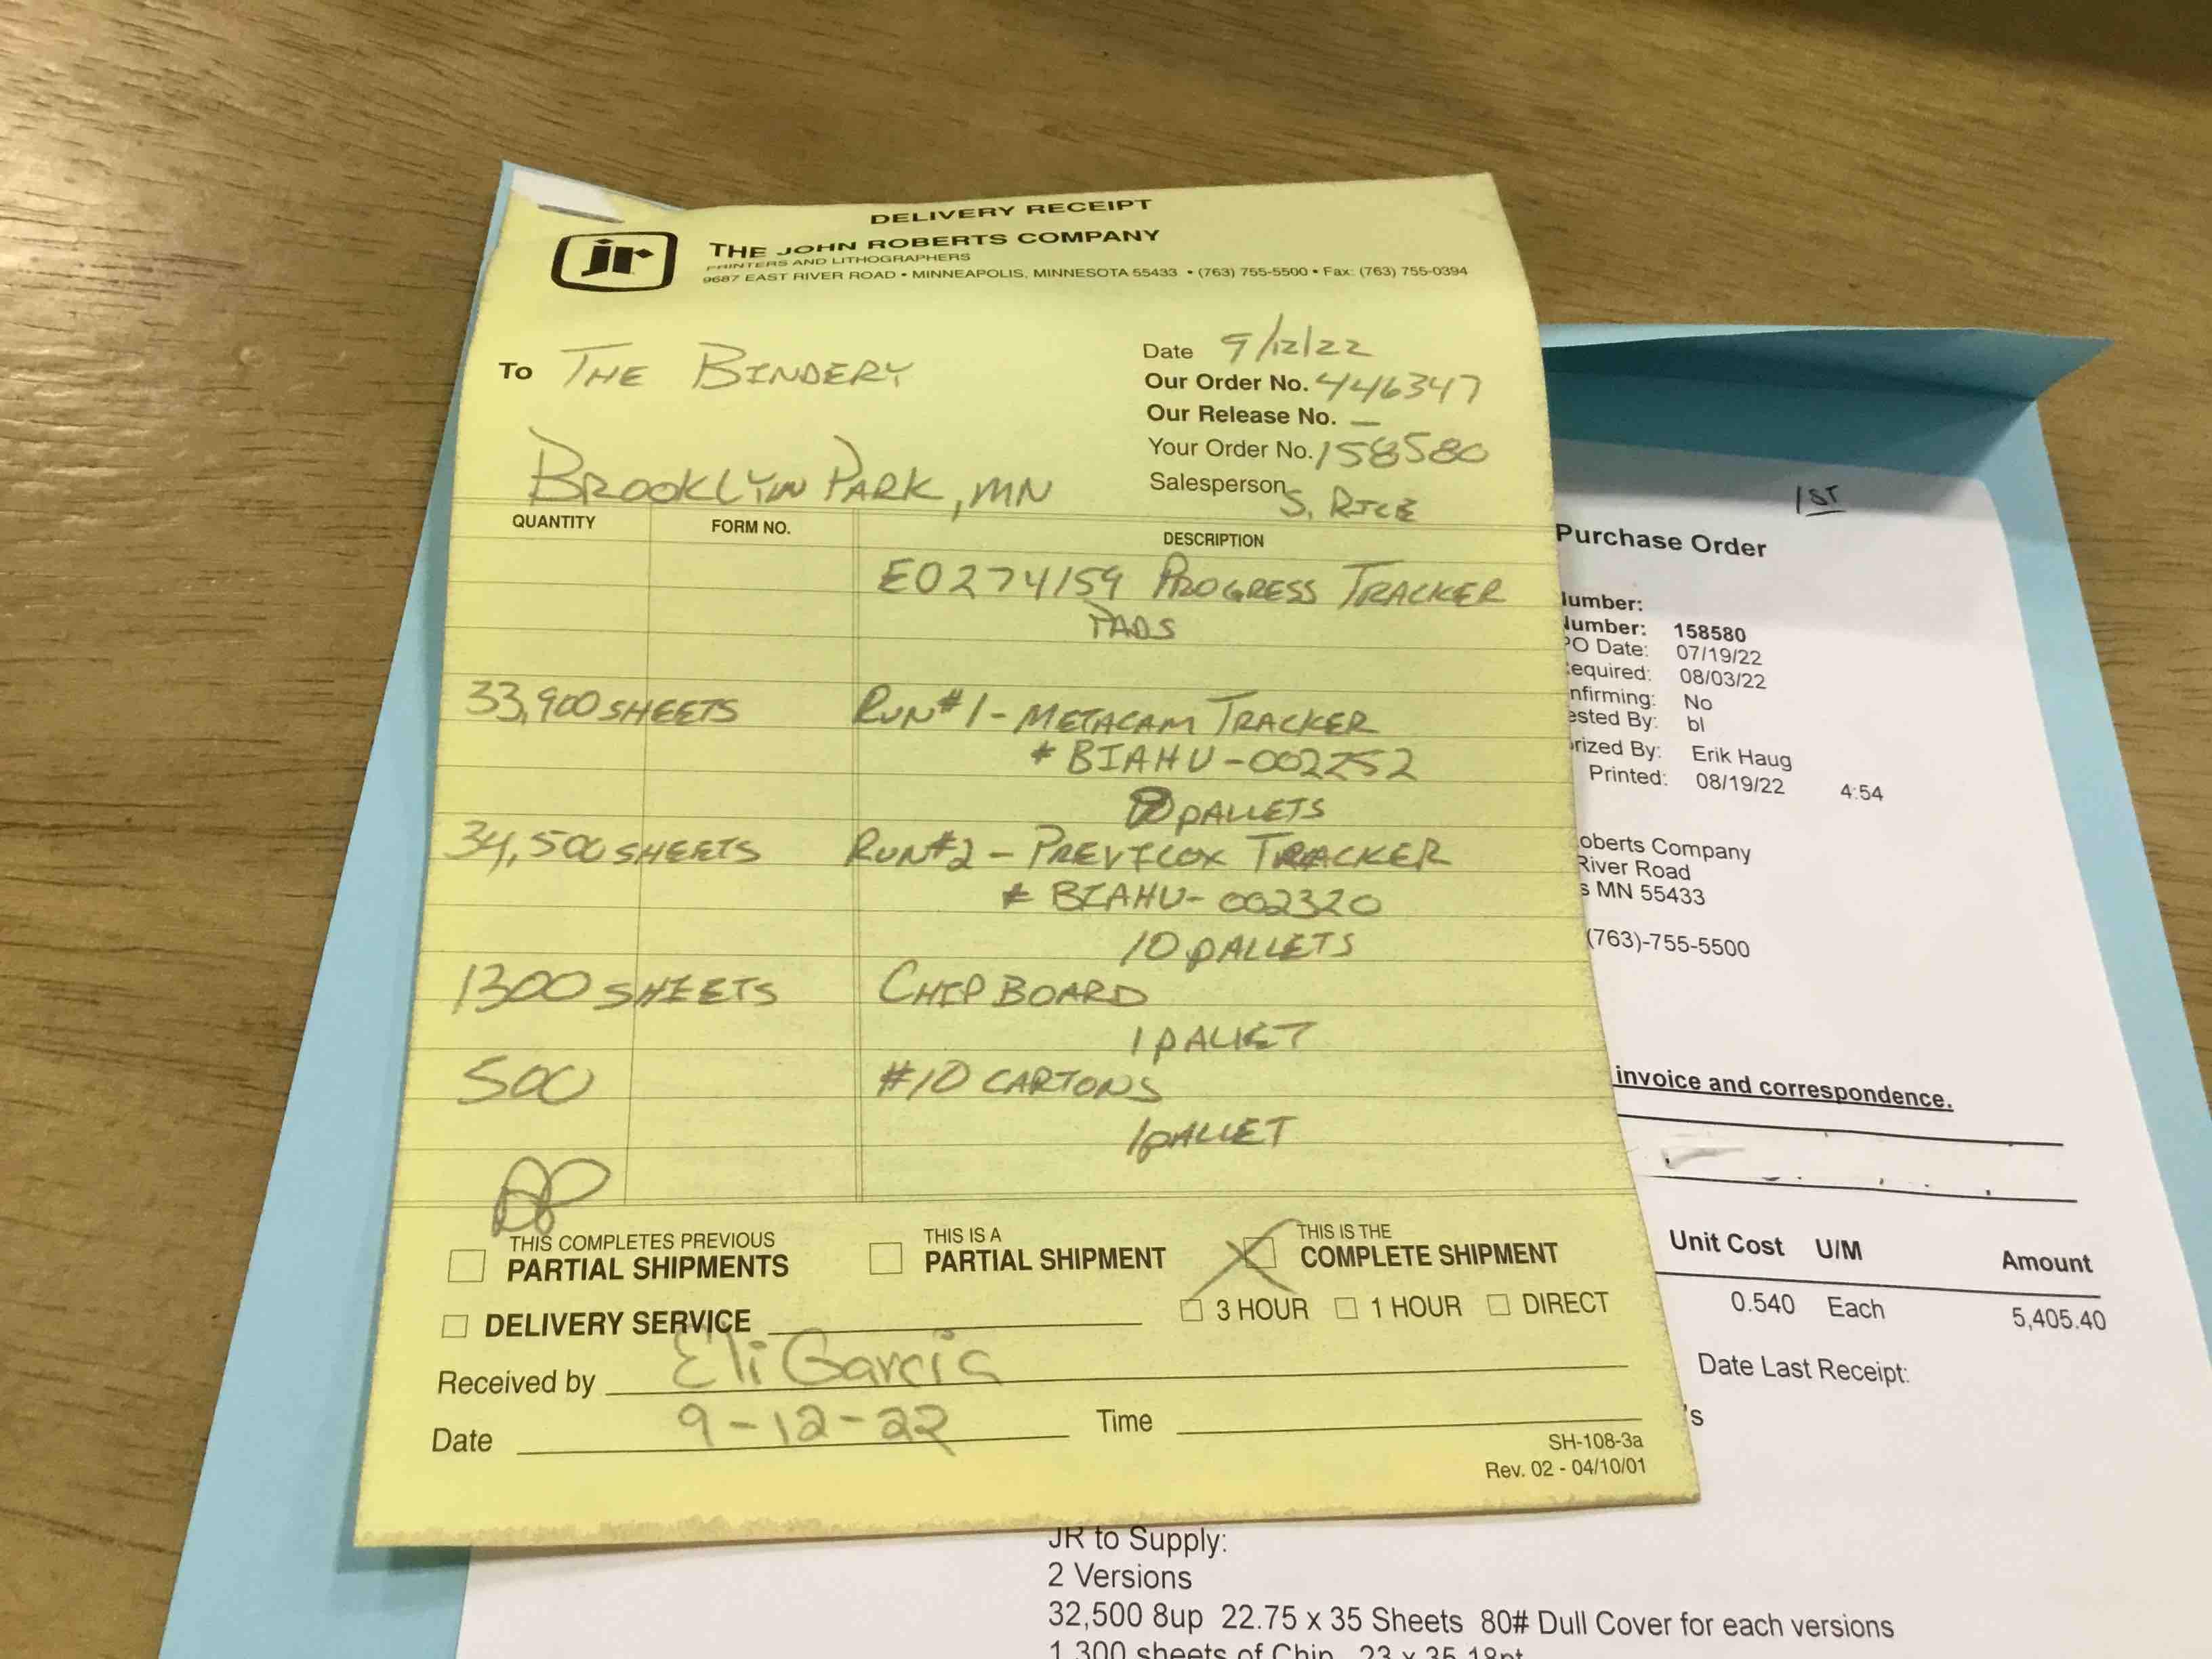 DELIVERY RECEIPT
jr
THE JOHN ROBERTS COMPANY
PRINTERS AND LITHOGRAPHERS
9687 EAST RIVER ROAD • MINNEAPOLIS, MINNESOTA 55433 • (763) 755-5500 • Fax: (763) 755-0394
To THE BINDERY
BROOKLYN PARK, MN
Date 9/12/22
Our Order No. 446347
Our Release No. —
Your Order No. 158580
Salesperson S. RICE
QUANTITY FORM NO. DESCRIPTION
E0274159 PROGRESS TRACKER
PADS
33,900 SHEETS RUN #1 - METACAM TRACKER
* BIAHU-002252
PALLETS
34,500 SHEETS RUN #2 - PREVICOX TRACKER
* BIAHU-002320
10 PALLETS
1300 SHEETS CHIP BOARD
1 PALLET
500 #10 CARTONS
1 PALLET
THIS COMPLETES PREVIOUS
PARTIAL SHIPMENTS
THIS IS A
PARTIAL SHIPMENT
THIS IS THE
COMPLETE SHIPMENT
DELIVERY SERVICE
3 HOUR 1 HOUR DIRECT
Received by Eli Garcia
Date 9-12-22 Time
SH-108-3a
Rev. 02 - 04/10/01
1ST
Purchase Order
umber:
umber: 158580
PO Date: 07/19/22
equired: 08/03/22
nfirming: No
ested By: bl
rized By: Erik Haug
Printed: 08/19/22 4:54
oberts Company
River Road
s MN 55433
(763)-755-5500
invoice and correspondence.
Unit Cost U/M Amount
0.540 Each 5,405.40
Date Last Receipt:
's
JR to Supply:
2 Versions
32,500 8up 22.75 x 35 Sheets 80# Dull Cover for each versions
1,300 sheets of Chip 23 x 35 18pt